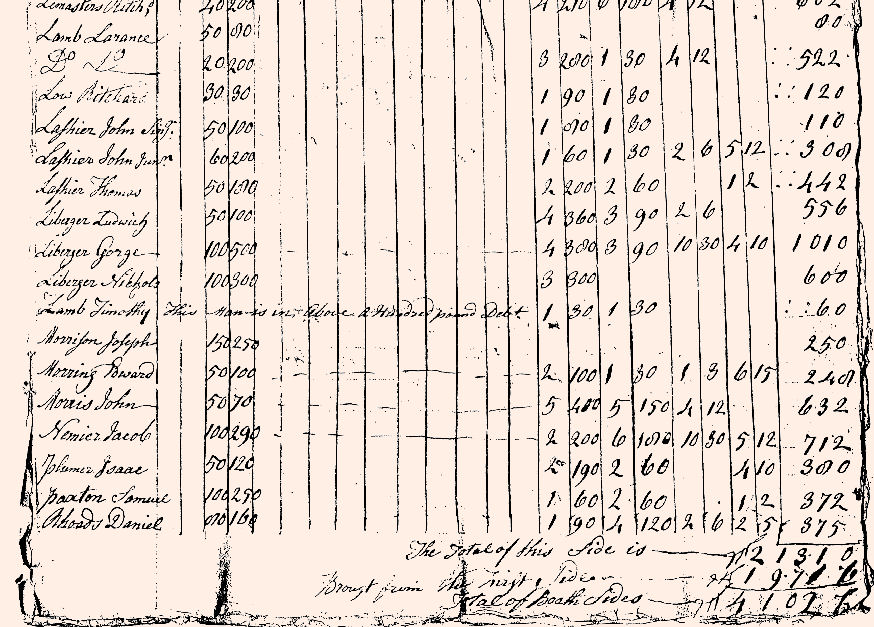 Lemasters Ritch? 40 200 4 210 6 180 4 12 602
Lamb Larance 50 80 80
Do Lo 20 200 3 280 1 30 4 12 522
Low Ritchard 30 30 1 90 1 30 120
Lashier John Sinr. 50 100 1 80 1 30 110
Lashier John Junr 60 200 1 60 1 30 2 6 5 12 308
Lashier Thomas 50 180 2 200 2 60 12 442
Liberger Ludwich 50 100 4 360 3 90 2 6 556
Liberger Gorge 100 500 4 380 3 90 10 30 4 10 1010
Liberger Nicholos 100 300 3 300 600
Lamb Timothy This man is in Above a Hundred pound Debt 1 30 1 30 60
Morrison Joseph 150 250 250
Morring Edward 50 100 2 100 1 30 1 3 6 15 248
Morris John 50 70 5 400 5 150 4 12 632
Nemier Jacob 100 290 2 200 6 180 10 30 5 12 712
Plumer Isaac 50 120 2 190 2 60 4 10 380
Paxton Samuel 100 250 1 60 2 60 1 2 372
Rhoads Daniel 80 160 1 90 4 120 2 6 2 5 375
The Total of this Side is 21310
Brougt from the First Side 19716
Total of Boath Sides 41026